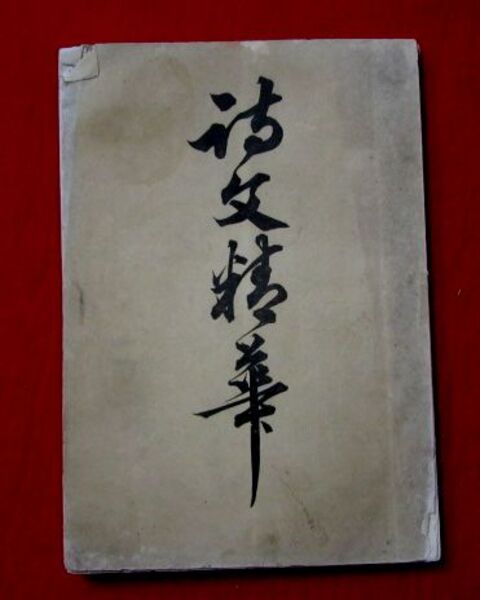 詩文精華